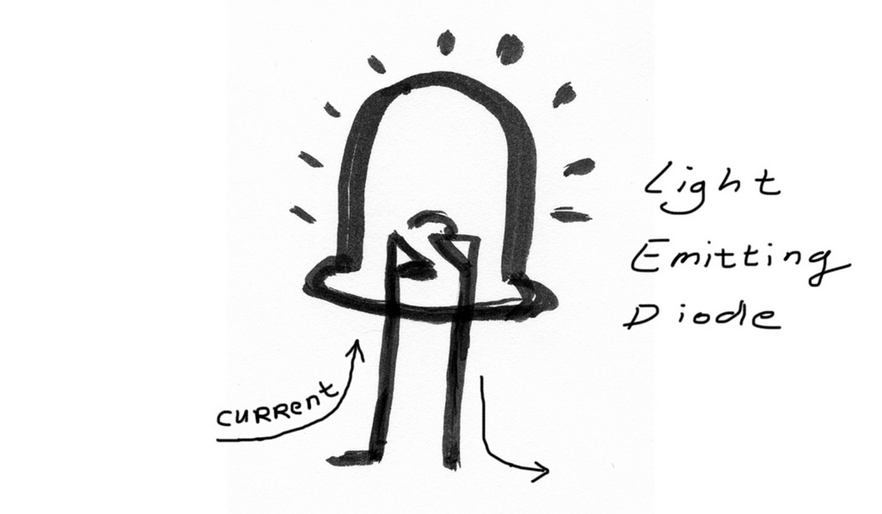 Light
Emitting
Diode
CURRent